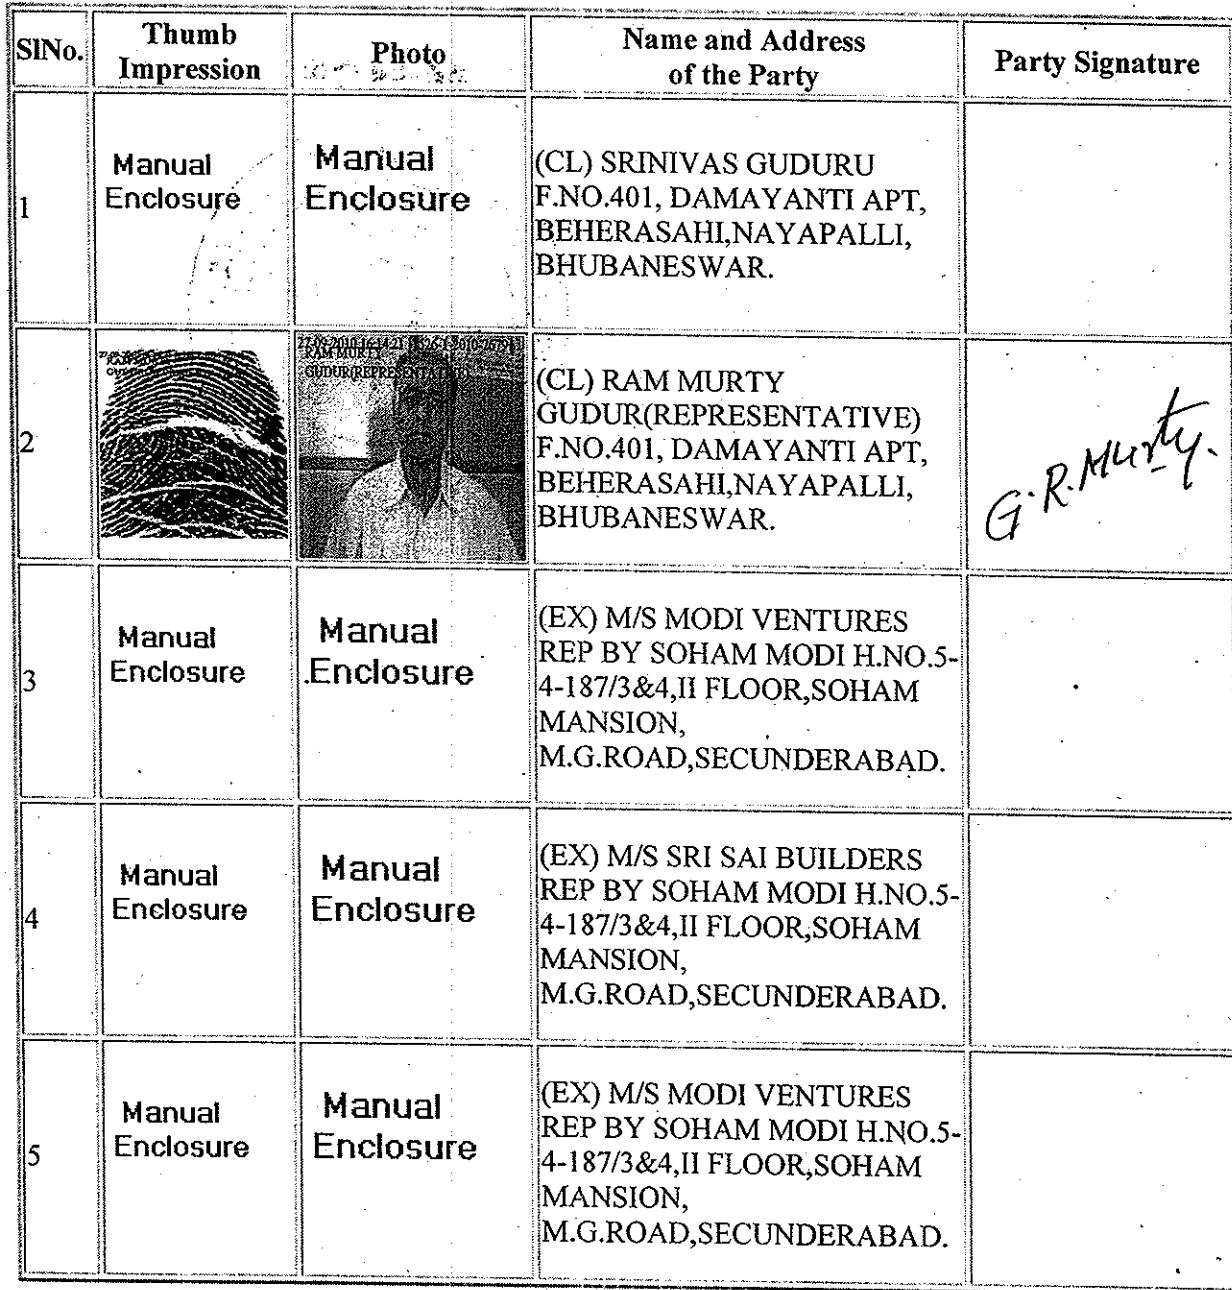 SlNo.
Thumb
Impression
Photo
Name and Address
of the Party
Party Signature
1
Manual
Enclosure
Manual
Enclosure
(CL) SRINIVAS GUDURU
F.NO.401, DAMAYANTI APT,
BEHERASAHI,NAYAPALLI,
BHUBANESWAR.
2
RAM MURTY
GUDUR(REPRESENTATIVE)
(CL) RAM MURTY
GUDUR(REPRESENTATIVE)
F.NO.401, DAMAYANTI APT,
BEHERASAHI,NAYAPALLI,
BHUBANESWAR.
G.R.Murty.
3
Manual
Enclosure
Manual
.Enclosure
(EX) M/S MODI VENTURES
REP BY SOHAM MODI H.NO.5-
4-187/3&4,II FLOOR,SOHAM
MANSION,
M.G.ROAD,SECUNDERABAD.
4
Manual
Enclosure
Manual
Enclosure
(EX) M/S SRI SAI BUILDERS
REP BY SOHAM MODI H.NO.5-
4-187/3&4,II FLOOR,SOHAM
MANSION,
M.G.ROAD,SECUNDERABAD.
5
Manual
Enclosure
Manual
Enclosure
(EX) M/S MODI VENTURES
REP BY SOHAM MODI H.NO.5-
4-187/3&4,II FLOOR,SOHAM
MANSION,
M.G.ROAD,SECUNDERABAD.